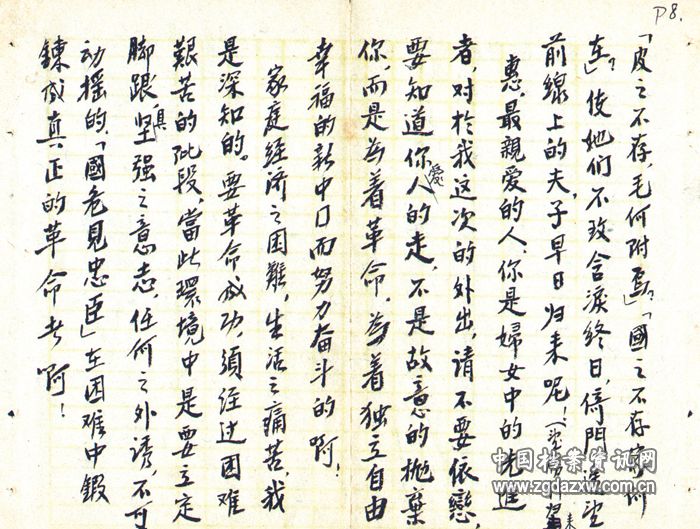 P8.
「皮之不存，毛何附焉？」「國之不存，家何
在？」使她们不致含淚終日，倚門遠望
前線上的夫子早日归来呢！
惠，最親爱的人，你是婦女中的先進
者，对於我这次的外出，请不要依戀
要知道你愛人的走，不是故意的抛棄
你，而是為着革命，為着独立自由
幸福的新中口而努力奋斗的啊！
家庭经济之困難，生活之痛苦，我
是深知的。要革命成功，須经过困难
艱苦的阶段，當此環境中是要立定
脚跟，具坚强之意志，任何之外誘，不可
动摇的，「國危見忠臣」在困难中鍛
鍊成真正的革命者啊！
中国档案资讯网
www.zgdazxw.com.cn